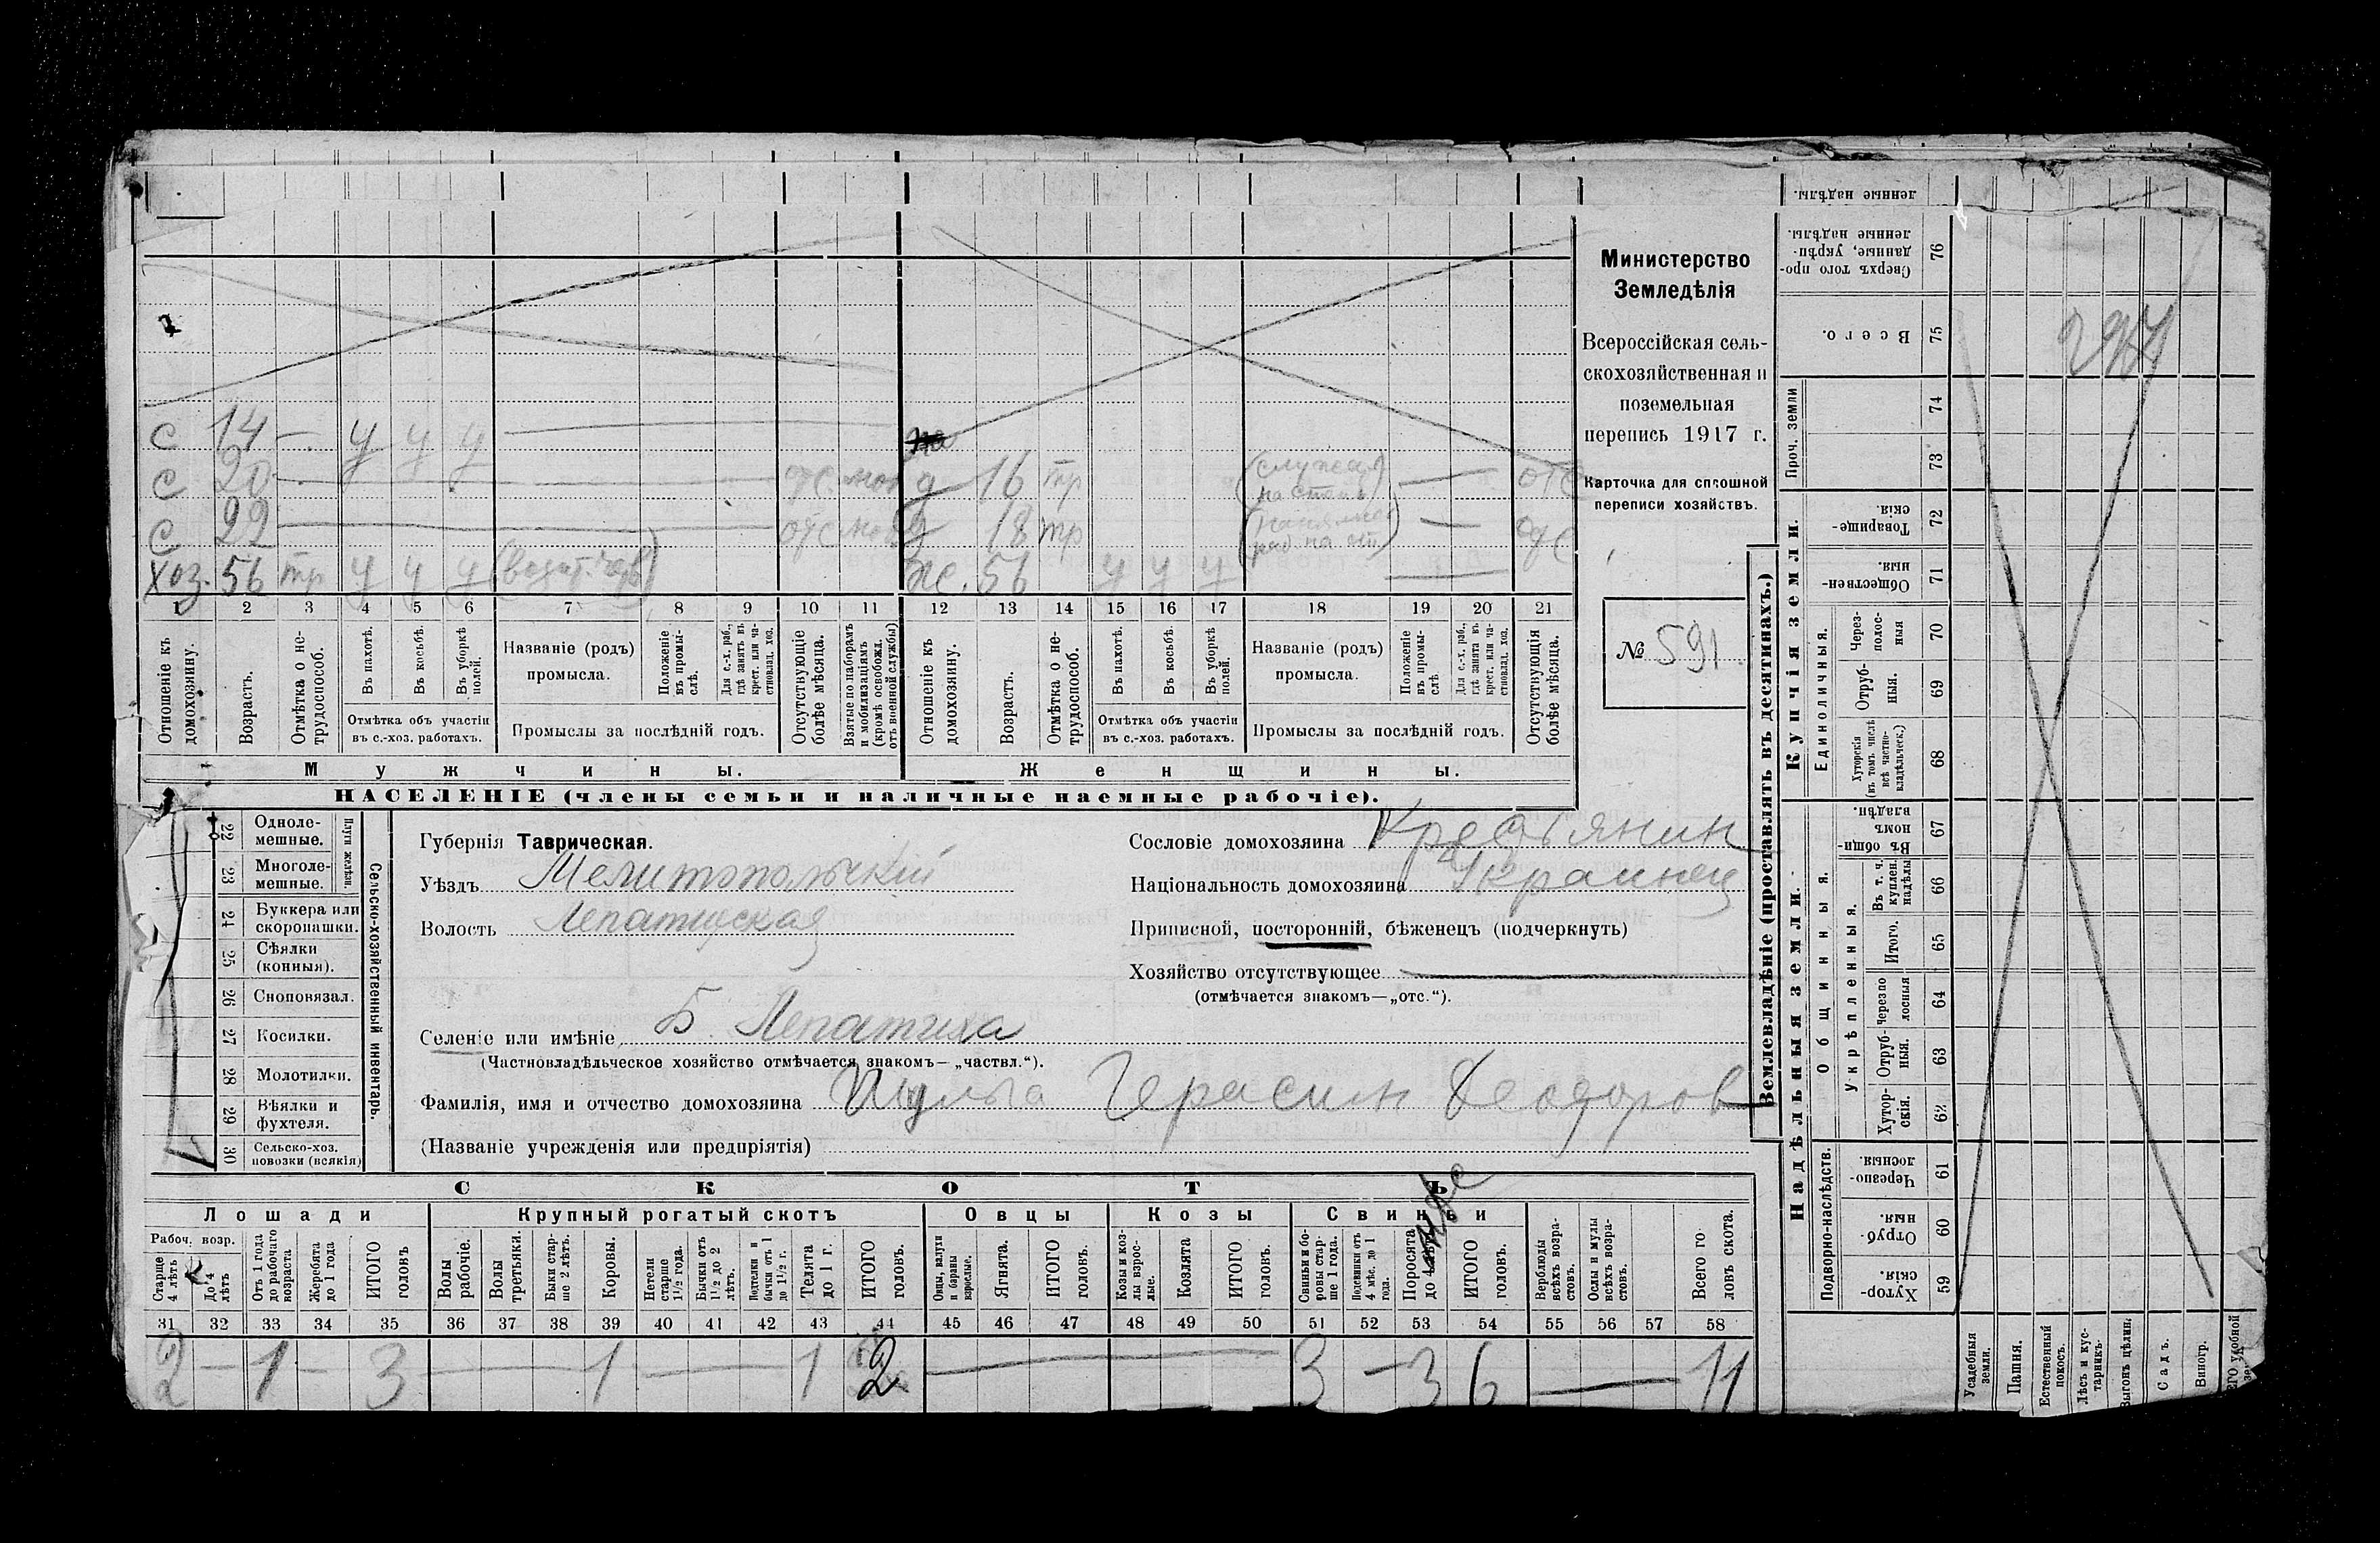 с 14 — у у у
с 20 отс. моб
д 16 тр (служил на степи) — отс
с 22 отс моб
д 18 тр — отс
хоз. 56 тр у у у
ж. 56 у у у —
1 2 3 4 5 6 7 8 9 10 11 12 13 14 15 16 17 18 19 20 21
Отношеніе къ домохозяину.
Возрастъ.
Отмѣтка о не-
трудоспособ.
Въ пахотѣ.
Въ косьбѣ.
Въ уборкѣ
полей.
Отмѣтка объ участіи
въ с.-хоз. работахъ.
Названіе (родъ)
промысла.
Положеніе
въ промы-
слѣ.
Для с.-х. раб.,
гдѣ занятъ въ
крест. или ча-
стновлад. хоз.
Промыслы за послѣдній годъ.
Отсутствующіе
болѣе мѣсяца.
Взятые по наборамъ
и мобилизаціямъ
(кромѣ освобожд.
отъ военной службы)
Отношеніе къ
домохозяину.
Возрастъ.
Отмѣтка о не-
трудоспособ.
Въ пахотѣ.
Въ косьбѣ.
Въ уборкѣ
полей.
Отмѣтка объ участіи
въ с.-хоз. работахъ.
Названіе (родъ)
промысла.
Положеніе
въ промы-
слѣ
Для с.-х. раб.,
гдѣ занята въ
крест. или ча-
стновлад. хоз.
Промыслы за послѣдній годъ.
Отсутствующія
болѣе мѣсяца.
Мужчины.
Женщины.
НАСЕЛЕНІЕ (члены семьи и наличные наемные рабочіе).
Министерство
Земледѣлія
Всероссійская сель-
скохозяйственная и
поземельная
перепись 1917 г.
Карточка для сплошной
переписи хозяйствъ.
№ 591.
22 Одноле-
мешные.
23 Многоле-
мешные.
Плуги желѣзн.
24 Буккера или
скоропашки.
25 Сѣялки
(конныя).
26 Сноповязал.
27 Косилки.
28 Молотилки.
29 Вѣялки и
фухтеля.
30 Сельско-хоз.
повозки (всякія)
Сельско-хозяйственный инвентарь.
Губернія Таврическая.
Уѣздъ Мелитопольскій
Волость Лепатиская
Сословіе домохозяина Крестьянин
Національность домохозяина Украинец
Приписной, посторонній, бѣженецъ (подчеркнуть)
Хозяйство отсутствующее
(отмѣчается знакомъ—„отс.“).
Селеніе или имѣніе Б. Лепатиха
(Частновладѣльческое хозяйство отмѣчается знакомъ—„частвл.“).
Фамилія, имя и отчество домохозяина Шульга Герасим Феодоров
(Названіе учрежденія или предпріятія)
СКОТЪ
Лошади
Крупный рогатый скотъ
Овцы
Козы
Свиньи
Рабоч. возр.
Старше
4 лѣтъ
До 4
лѣтъ
Отъ 1 года
до рабочаго
возраста
Жеребята
до 1 года
ИТОГО
головъ
Волы
рабочіе.
Волы
третьяки.
Быки стар-
ше 2 лѣтъ.
Коровы.
Нетели
старше
1½ года.
Бычки отъ
1½ до 2
лѣтъ.
Подтелки и
бычки отъ 1
до 1½ г.
Телята
до 1 г.
ИТОГО
головъ.
Овцы, валухи
и бараны
взрослые.
Ягнята.
ИТОГО
головъ.
Козы и коз-
лы взрос-
лые.
Козлята
ИТОГО
головъ.
Свиньи и бо-
ровы стар-
ше 1 года.
Подсвинки отъ
4 мѣс. до 1
года.
Поросята
до 4
ИТОГО
головъ.
Верблюды
всѣхъ возра-
стовъ.
Ослы и мулы
всѣхъ возра-
стовъ.
Всего го-
ловъ скота.
31 32 33 34 35 36 37 38 39 40 41 42 43 44 45 46 47 48 49 50 51 52 53 54 55 56 57 58
2 — 1 — 3 — 1 — 1 2 — 3 — 3 6 — 11
Землевладѣніе (проставлять въ десятинахъ.)
Надѣльныя земли.
Купчія земли.
Проч. земли
Подворно-наслѣдств.
Общинныя.
Укрѣпленныя.
Единоличныя.
ленные надѣлы.
Сверхъ того про-
данные, укрѣп-
ленные надѣлы. 76
Всего. 75
74
73
Товарище-
скія. 72
Обществен-
ныя. 71
Через-
полос-
ныя 70
Отруб-
ныя. 69
Хуторскія
(въ томъ числѣ
всѣ частно-
владѣльческ.) 68
Въ общи-
номъ
владѣн. 67
Въ т. ч.
куплен.
надѣлы 66
Итого. 65
Черезпо-
лосныя 64
Отруб-
ныя. 63
Хутор-
скія. 62
Черезпо-
лосныя. 61
Отруб-
ныя. 60
Хутор-
скія. 59
Усадебныя
земли.
Пашня.
Естественный
покосъ.
Лѣсъ и кус-
тарникъ.
Выгонъ цѣлин.
Садъ.
Виногр.